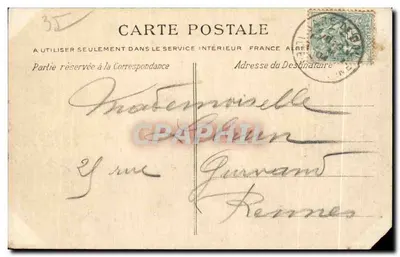 35
CARTE POSTALE
A UTILISER SEULEMENT DANS LE SERVICE INTÉRIEUR FRANCE
Partie réservée à la Correspondance
Adresse du Destinataire
Mademoiselle
25 rue Gurvand
Rennes